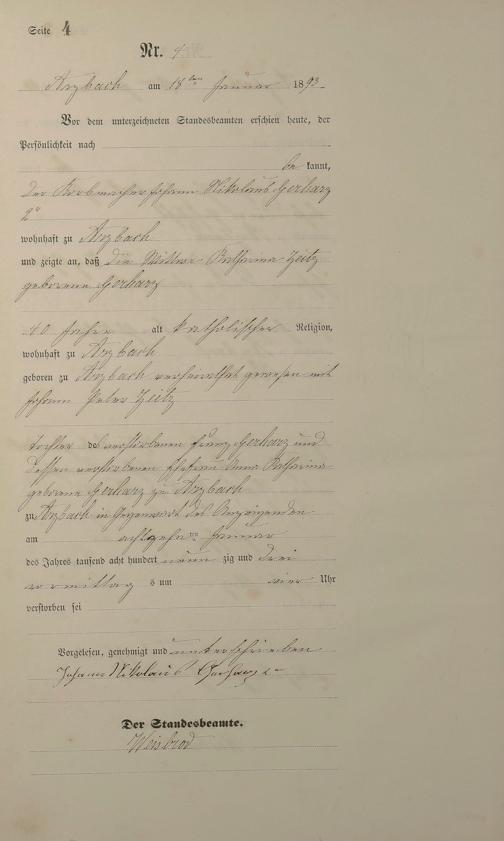 Seite 4
Nr. 4
Arzbach am 18ten Januar 1893
Vor dem unterzeichneten Standesbeamten erschien heute, der
Persönlichkeit nach
be kannt,
der Korbmacher Johann Nikolaus Gerharz
2r
wohnhaft zu Arzbach
und zeigte an, daß die Wittwe Katharina Zeitz
geborene Gerharz
40 Jahre alt katholischer Religion,
wohnhaft zu Arzbach
geboren zu Arzbach verheirathet gewesen mit
Johann Peter Zeitz
tochter des verstorbenen Franz Gerharz und
dessen verstorbenen Ehefrau Anna Katharina
geborene Gerharz zu Arzbach
zu Arzbach in Gegenwart des Anzeigenden
am achtzehnten Januar
des Jahres tausend acht hundert neun zig und drei
vormittag s um vier Uhr
verstorben sei
Vorgelesen, genehmigt und unterschrieben
Johann Nikolaus Gerharz 2r
Der Standesbeamte.
Weisbrod